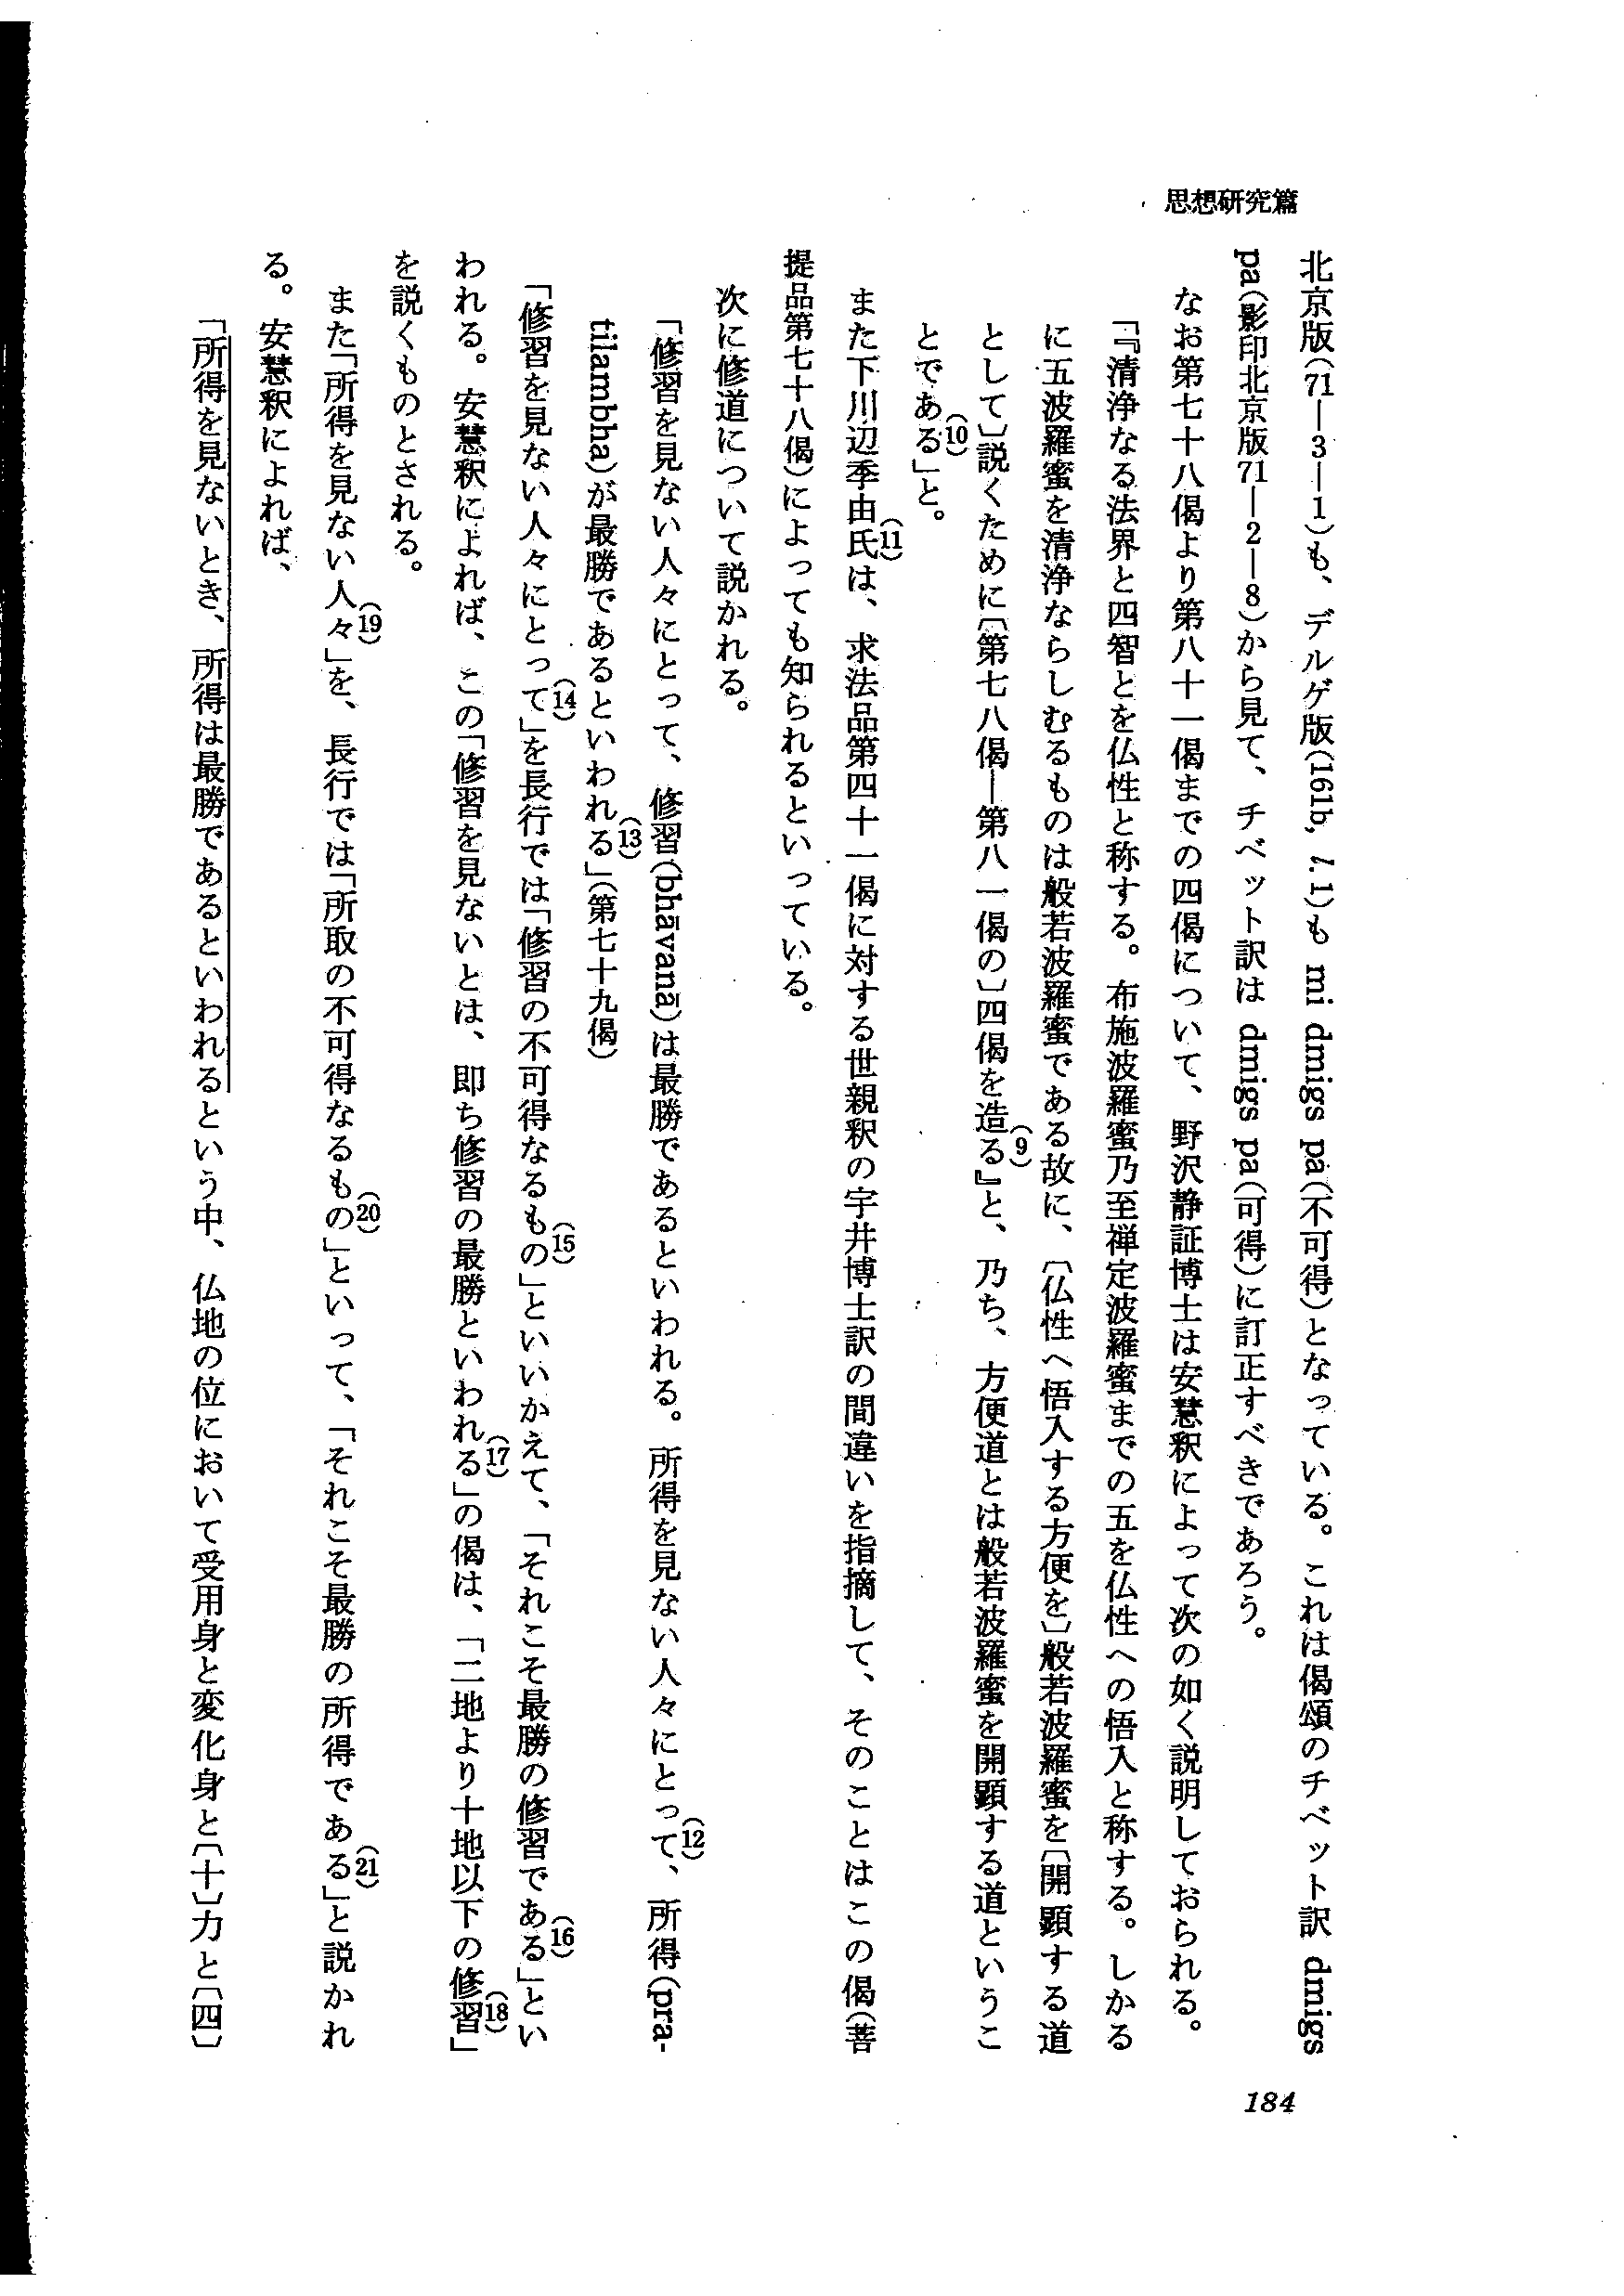 思想研究篇
北京版(71―3―1)も、デルゲ版(161b, l.1)も mi dmigs pa(不可得)となっている。これは偈頌のチベット訳 dmigs
pa(影印北京版71―2―8)から見て、チベット訳は dmigs pa(可得)に訂正すべきであろう。
なお第七十八偈より第八十一偈までの四偈について、野沢静証博士は安慧釈によって次の如く説明しておられる。
「『清浄なる法界と四智とを仏性と称する。布施波羅蜜乃至禅定波羅蜜までの五を仏性への悟入と称する。しかる
に五波羅蜜を清浄ならしむるものは般若波羅蜜である故に、〔仏性へ悟入する方便を〕般若波羅蜜を〔開顕する道
として〕説くために〔第七八偈―第八一偈の〕四偈を造る(9)』と、乃ち、方便道とは般若波羅蜜を開顕する道というこ
とである(10)」と。
また下川辺季由氏(11)は、求法品第四十一偈に対する世親釈の宇井博士訳の間違いを指摘して、そのことはこの偈(菩
提品第七十八偈)によっても知られるといっている。
次に修道について説かれる。
「修習を見ない人々にとって、修習(bhāvanā)は最勝であるといわれる。所得を見ない人々にとって(12)、所得(pra-
tilambha)が最勝であるといわれる(13)」(第七十九偈)
「修習を見ない人々にとって(14)」を長行では「修習の不可得なるもの(15)」といいかえて、「それこそ最勝の修習である(16)」とい
われる。安慧釈によれば、この「修習を見ないとは、即ち修習の最勝といわれる(17)」の偈は、「二地より十地以下の修習(18)」
を説くものとされる。
また「所得を見ない人々(19)」を、長行では「所取の不可得なるもの(20)」といって、「それこそ最勝の所得である(21)」と説かれ
る。安慧釈によれば、
「所得を見ないとき、所得は最勝であるといわれるという中、仏地の位において受用身と変化身と〔十〕力と〔四〕
184